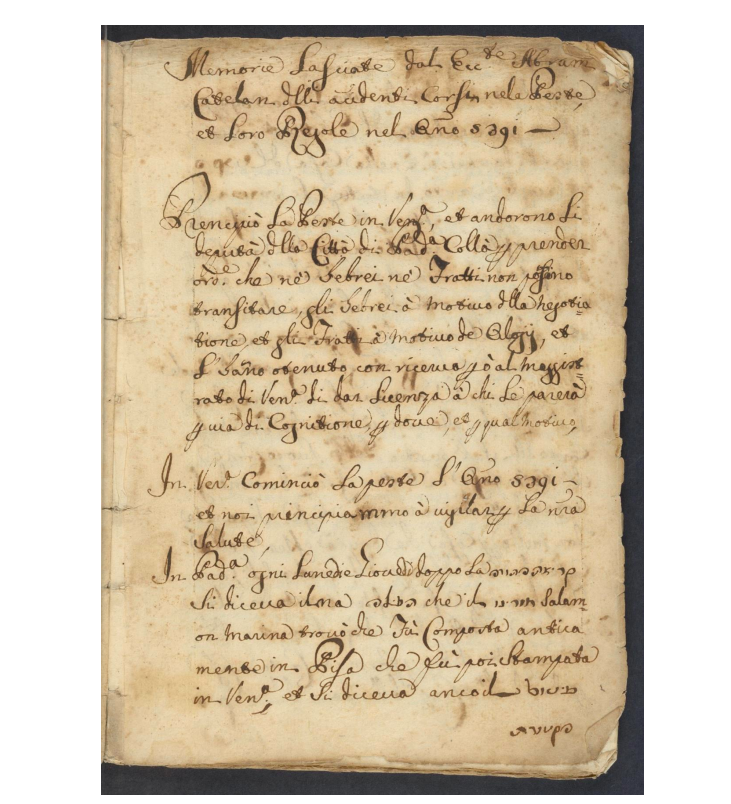 Memorie Lasciate dal Ecc.te Abram
Catelan dlli accidenti Corsi nela Peste,
et Loro Regole nel Año 5391 —
Principiò La Peste in Ven.a, et andorono li
deputà dlla Città di Pad.a Collà p prender
ord. che ne Hebrei ne Fratti non possino
transitare, gli Hebrei à motivo dlla negotia=
tione et gli Fratti à motivo de Alogij, et
L'hano otenuto con riserva però al Maggist=
rato di Ven.a di dar Licenza à chi Le parerà
p via di Cognitione, p dove, et p qual motivo,
In Ven.a Cominciò La peste L'Año 5391 —
et noi principiammo à vigilar p La nra
Salute,
In Pad.a ogni Lunedì e Giovedì doppo La
Si diceva il che il Salam=
on Marina trovò che Fù Composta antica
mente in Pisa che fù poi Stampata
in Ven.a, et Si diceva anco il